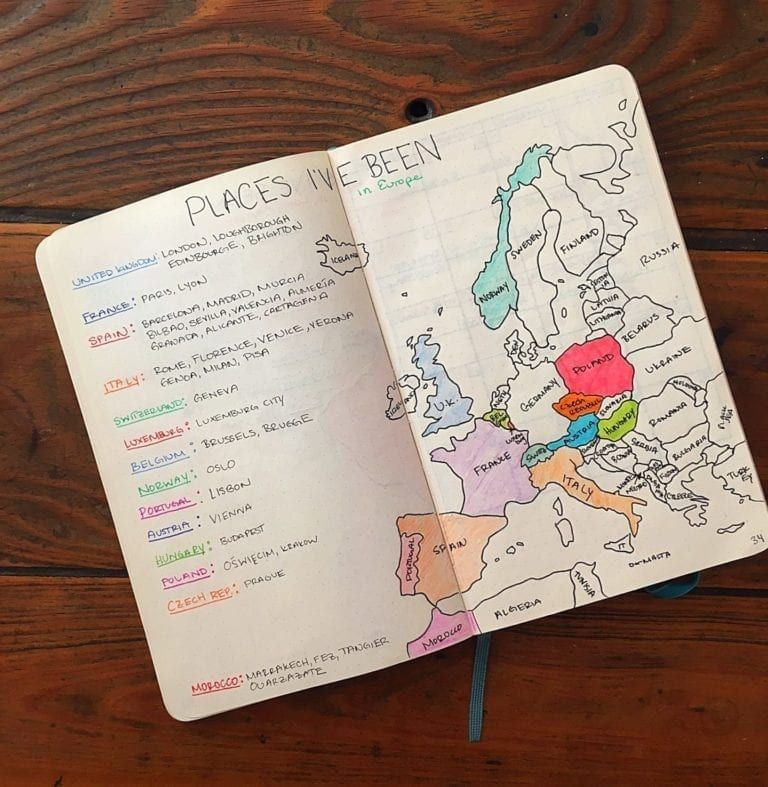 PLACES I'VE BEEN
in Europe
UNITED KINGDOM: LONDON, LOUGHBOROUGH
EDINBOURGE, BRIGHTON
FRANCE: PARIS, LYON
SPAIN: BARCELONA, MADRID, MURCIA
BILBAO, SEVILLA, VALENCIA, ALMERÍA
GRANADA, ALICANTE, CARTAGENA
ITALY: ROME, FLORENCE, VENICE, VERONA
GENOA, MILAN, PISA
SWITZERLAND: GENEVA
LUXEMBURG: LUXEMBURG CITY
BELGIUM: BRUSSELS, BRUGGE
NORWAY: OSLO
PORTUGAL: LISBON
AUSTRIA: VIENNA
HUNGARY: BUDAPEST
POLAND: OŚWIĘCIM, KRAKOW
CZECH REP: PRAGUE
MOROCCO: MARRAKECH, FEZ, TANGIER
OUARZAZATE
ICELAND
NORWAY
SWEDEN
FINLAND
RUSSIA
LATVIA
LITHUANIA
BELARUS
DEN
IRELAND
U.K.
NETH
BEL
GERMANY
POLAND
UKRAINE
CZECH
REPUBLIC
SLOVAKIA
MOLDOVA
FRANCE
SWITZ
AUSTRIA
HUNGARY
ROMANIA
SERBIA
BULGARIA
ITALY
IT
GREECE
TURK
EY
PORTUGAL
SPAIN
MALTA
MOROCCO
ALGERIA
TUNISIA
34